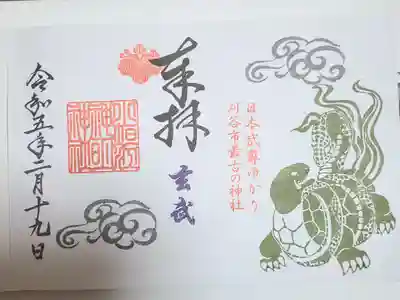 日本武尊ゆかり
刈谷市最古の神社
奉拝
玄武
小垣江
神明
神社
令和五年二月十九日